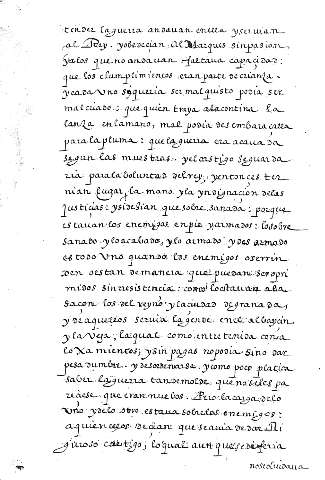 tender la guerra andauan en ella y seruian
al Rey. y obedecian al Marques sin pasion,
y a los que no andauan faltaua capacidad:
que los cumplimientos eran parte de crianza.
y cada uno si queria ser malquisto podia ser
mal criado: que quien traya a la contina la
lanza en la mano, mal podia desembaraçarla
para la pluma: que la guerra era acauada
segun las muestras. y el castigo se guarda
ria para la voluntad del rey, y entonces ter
nian lugar la mano y la yndignaçion de las
justiçias: y si deçian que sobresanada: porque
estauan los enemigos en pie y armados: lo sobre
sanado y lo acabado, y lo armado y desarmado
es todo uno quando los enemigos o se rin
den o estan de manera que puedan ser opri
midos sin resistencia: como lo estauan a la
saçon los del reyno y la ciudad de granada,
y de aquellos seruia la gente en el albayçin
y la Vega, la qual como entretenida con a
loxamientos, y sin pagas no podia sino dar
pesadumbre. y desordenarse. y como poco platica
saber la guerra tan de molde que no se les pa
reçiese que eran nueuos. Pero la carga de lo
uno y de lo otro estaua sobre los enemigos:
a quien ellos deçian que se auia de dar ri
guroso castigo, lo qual aunque se diferia
no se oluidaua